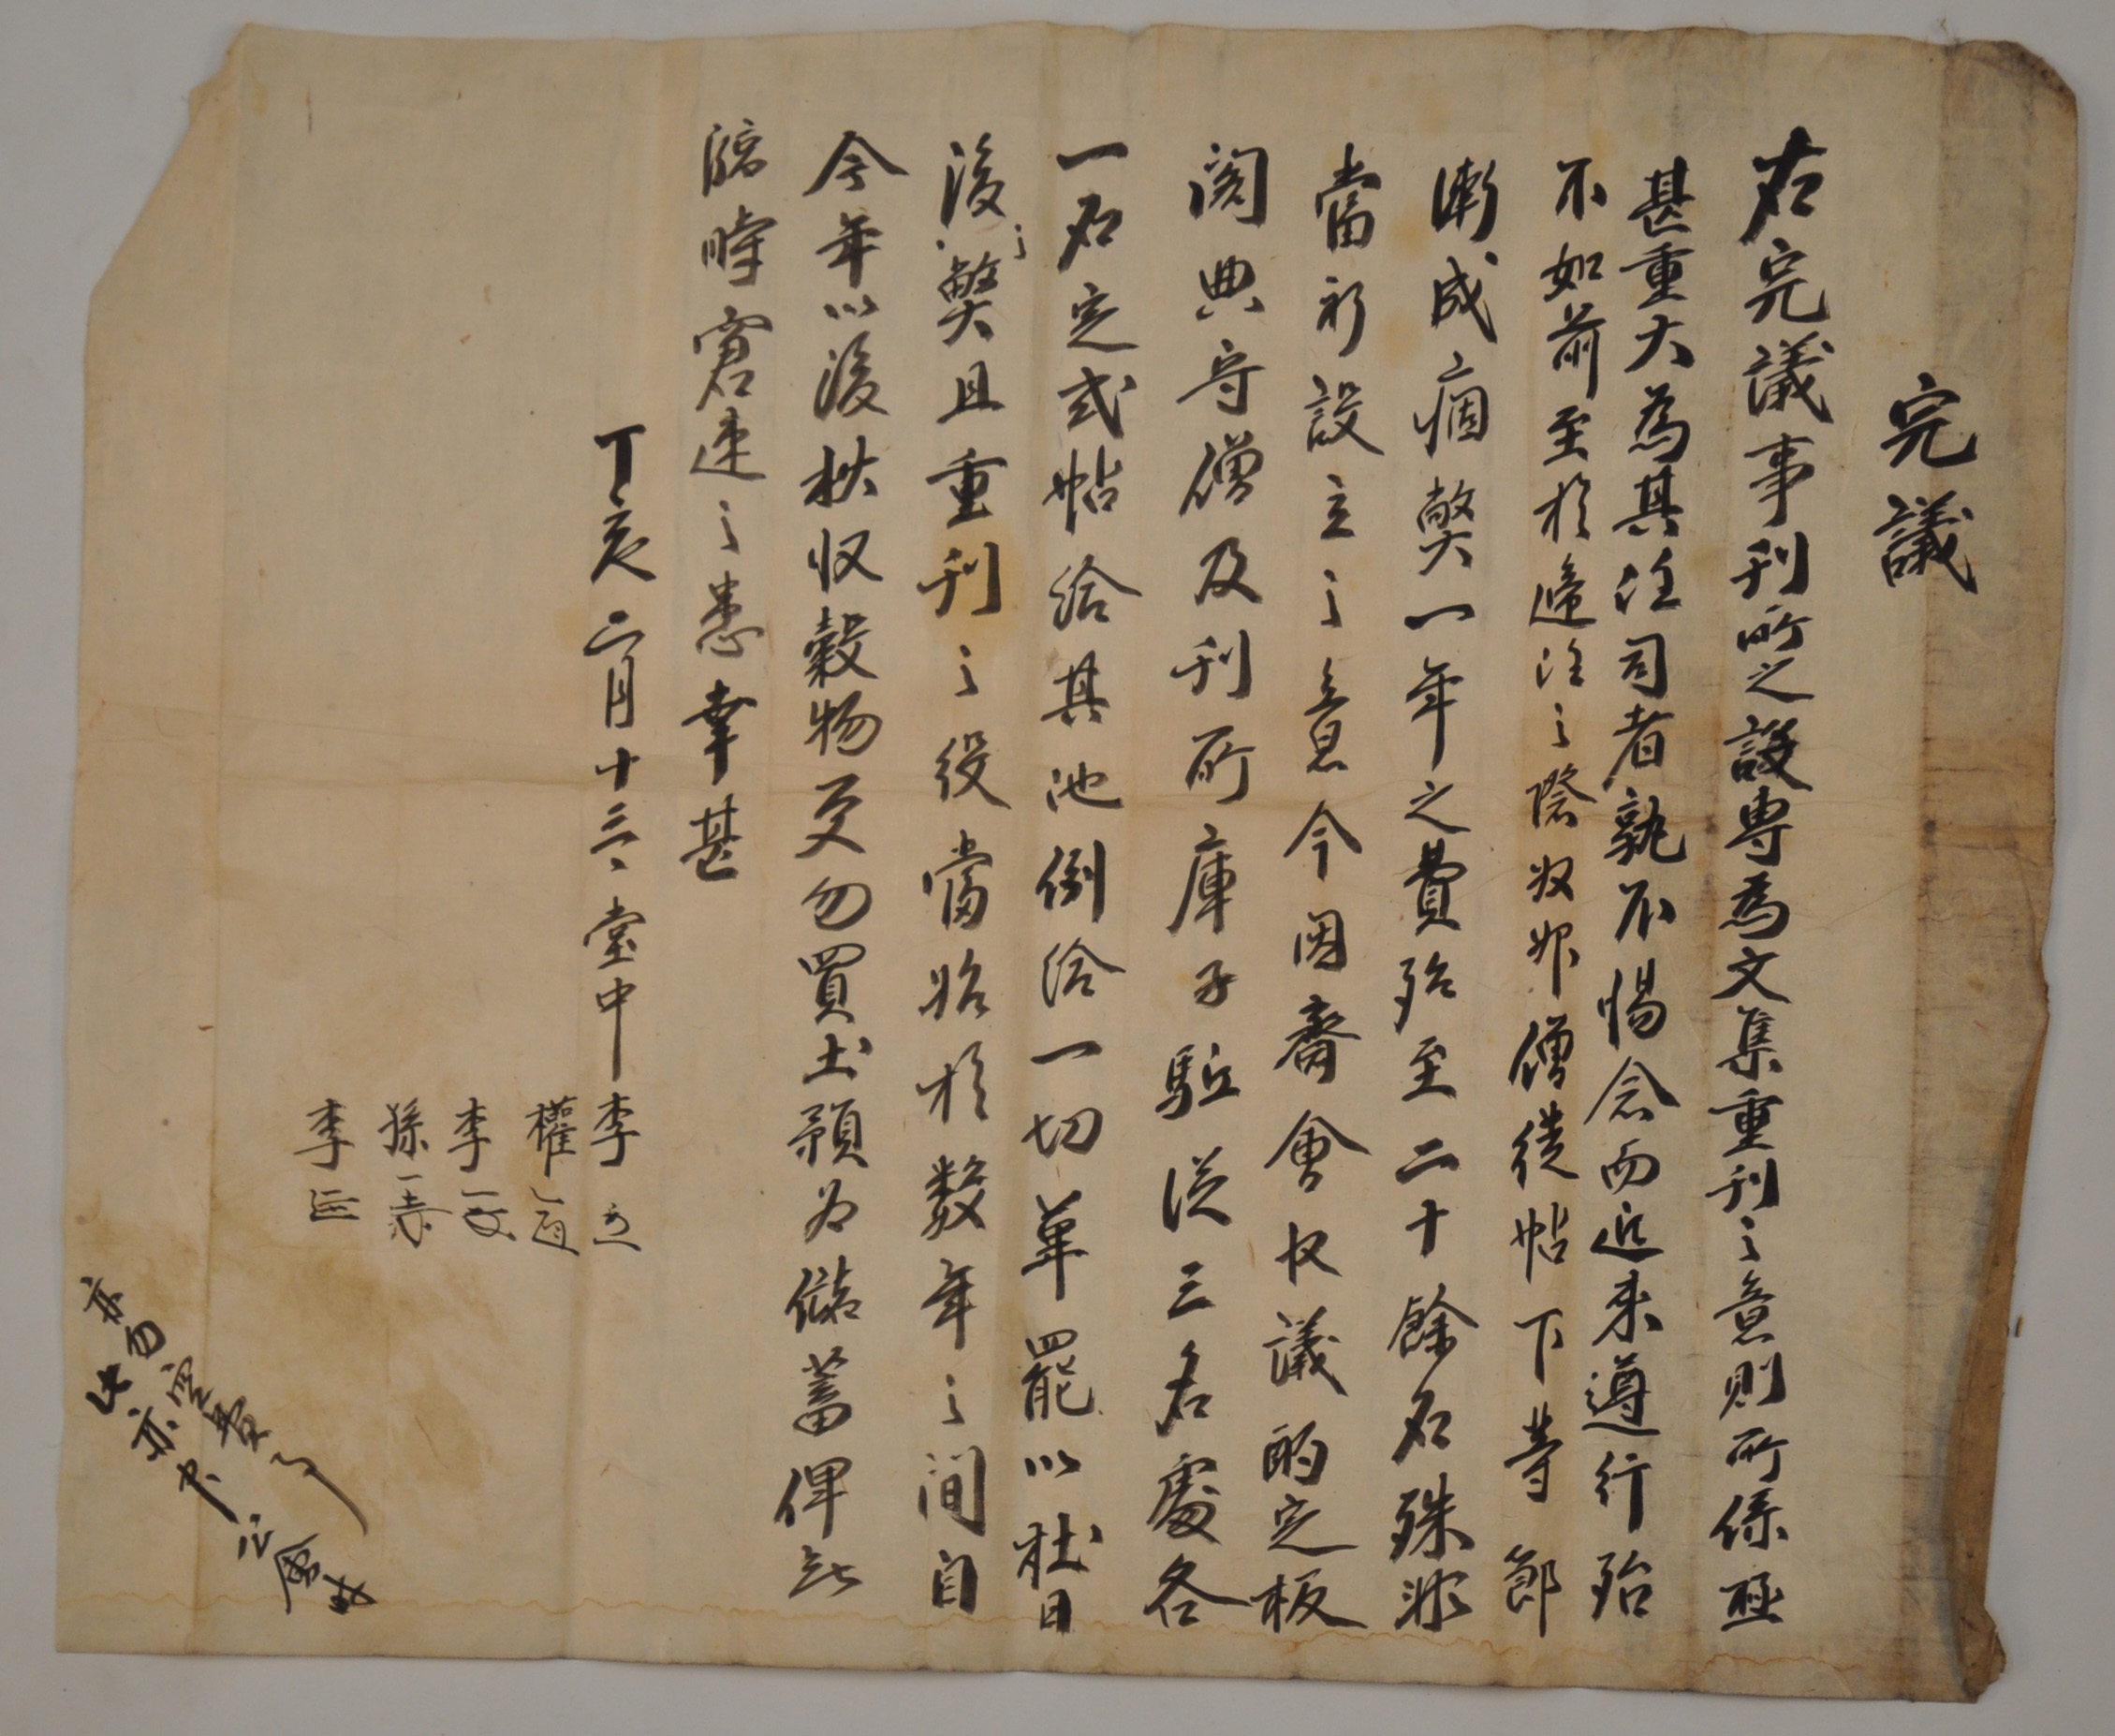 完議
右完議事刊所之設專爲文集重刊之意則所係極
甚重大爲其任司者孰不惕念而近來遵行殆
不如前至於遞任之際奴婢僧徒帖下等節
漸成痼弊一年之費殆至二十餘石殊非
當初設立之意今因齋會收議酌定板
閣典守僧及刊所庫子駈從三名處各
一石定式帖給其他例給一切革罷以杜日
後之弊且重刊之役當始於數年之間自
今年以後秋收穀物更勿買土預爲儲蓄俾無
臨時窘速之患幸甚
丁亥二月十三日 堂中 李
權
李
孫
李